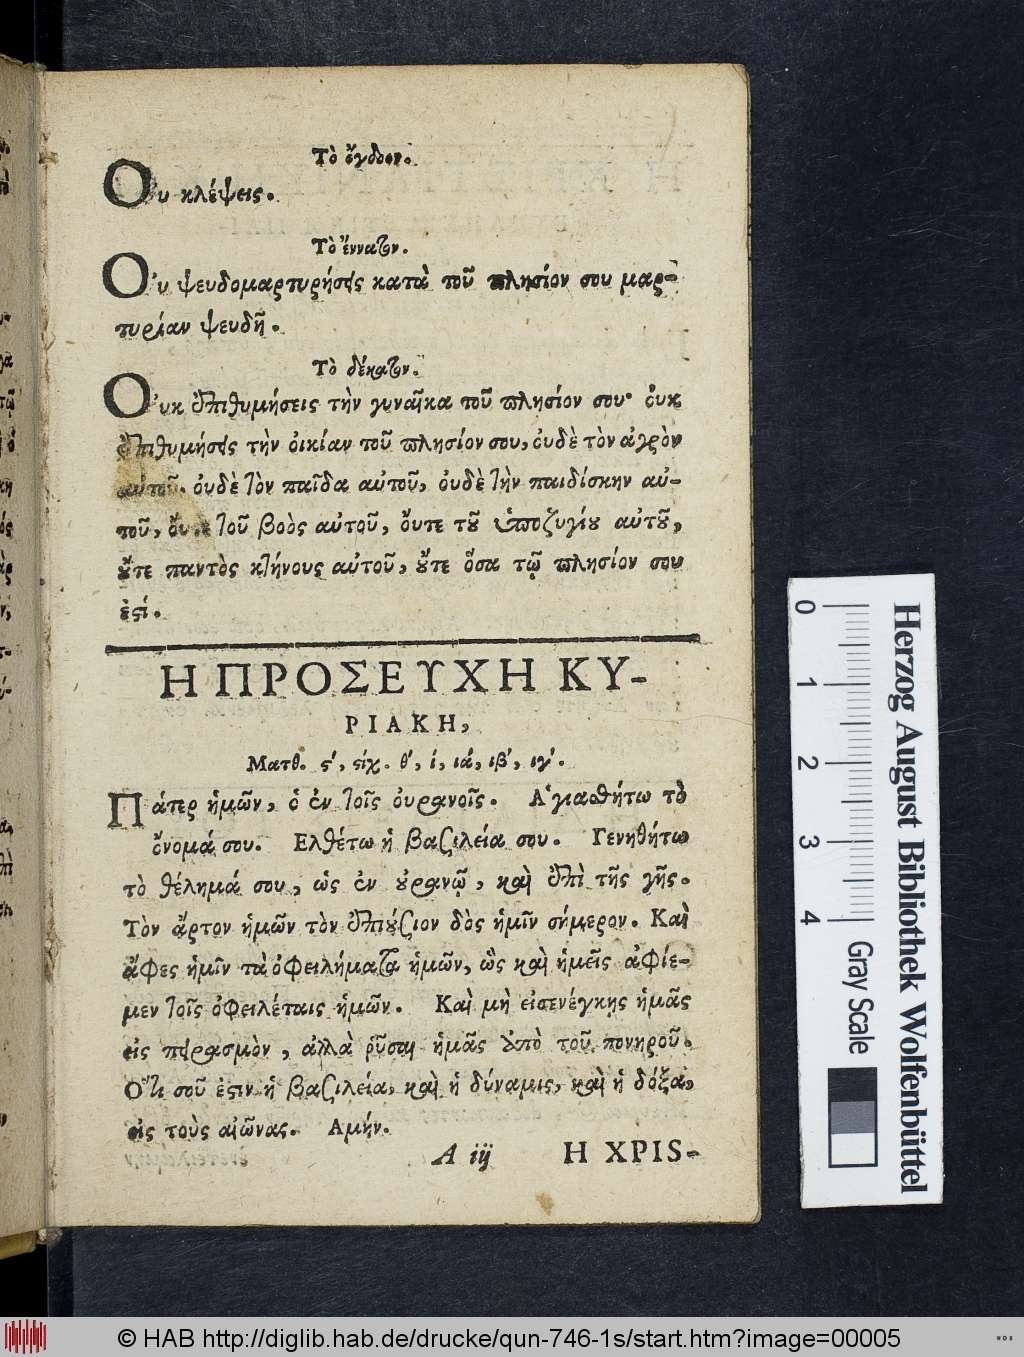 Τὸ ὄγδοον.
Οὐ κλέψεις.
Τὸ ἔννατον.
Οὐ ψευδομαρτυρήσεις κατὰ τοῦ πλησίον σου μαρ-
τυρίαν ψευδῆ.
Τὸ δέκατον.
Οὐκ ἐπιθυμήσεις τὴν γυναῖκα τοῦ πλησίον σου· ὀυκ
ἐπιθυμήσεις τὴν ὀικίαν τοῦ πλησίον σου, ὀυδὲ τὸν ἀγρὸν
αὐτοῦ. ὀυδὲ τὸν παῖδα αὐτοῦ, ὀυδὲ τὴν παιδίσκην αὐ-
τοῦ, ὄυτε τοῦ βοὸς αὐτοῦ, ὄυτε τοῦ ὑποζυγίου αὐτοῦ,
οὔτε παντὸς κτήνους αὐτοῦ, οὔτε ὅσα τῷ πλησίον σου
ἐστί.
Η ΠΡΟΣΕΥΧΗ ΚΥ-
ΡΙΑΚΗ,
Ματθ. ϛ', στίχ. θ', ί, ιά, ιβ', ιγ'.
Πάτερ ἡμῶν, ὁ ἐν τοῖς ὀυρανοῖς. Ἁγιασθήτω τὸ
ὄνομά σου. Ελθέτω ἡ βασιλεία σου. Γενηθήτω
τὸ θέλημά σου, ὡς ἐν οὐρανῷ, καὶ ἐπὶ τῆς γῆς.
Τὸν ἄρτον ἡμῶν τὸν ἐπιούσιον δὸς ἡμῖν σήμερον. Καὶ
ἄφες ἡμῖν τὰ ὀφειλήματα ἡμῶν, ὡς καὶ ἡμεῖς ἀφίε-
μεν τοῖς ὀφειλέταις ἡμῶν. Καὶ μὴ εἰσενέγκης ἡμᾶς
εἰς πειρασμὸν, ἀλλὰ ῥῦσαι ἡμᾶς ἀπὸ τοῦ πονηροῦ.
Ὅτι σοῦ ἐστιν ἡ βασιλεία, καὶ ἡ δύναμις, καὶ ἡ δόξα,
εἰς τοὺς αἰῶνας. Αμήν.
A iij Η ΧΡΙΣ-
0 1 2 3 4
Gray Scale
Herzog August Bibliothek Wolfenbüttel
© HAB http://diglib.hab.de/drucke/qun-746-1s/start.htm?image=00005